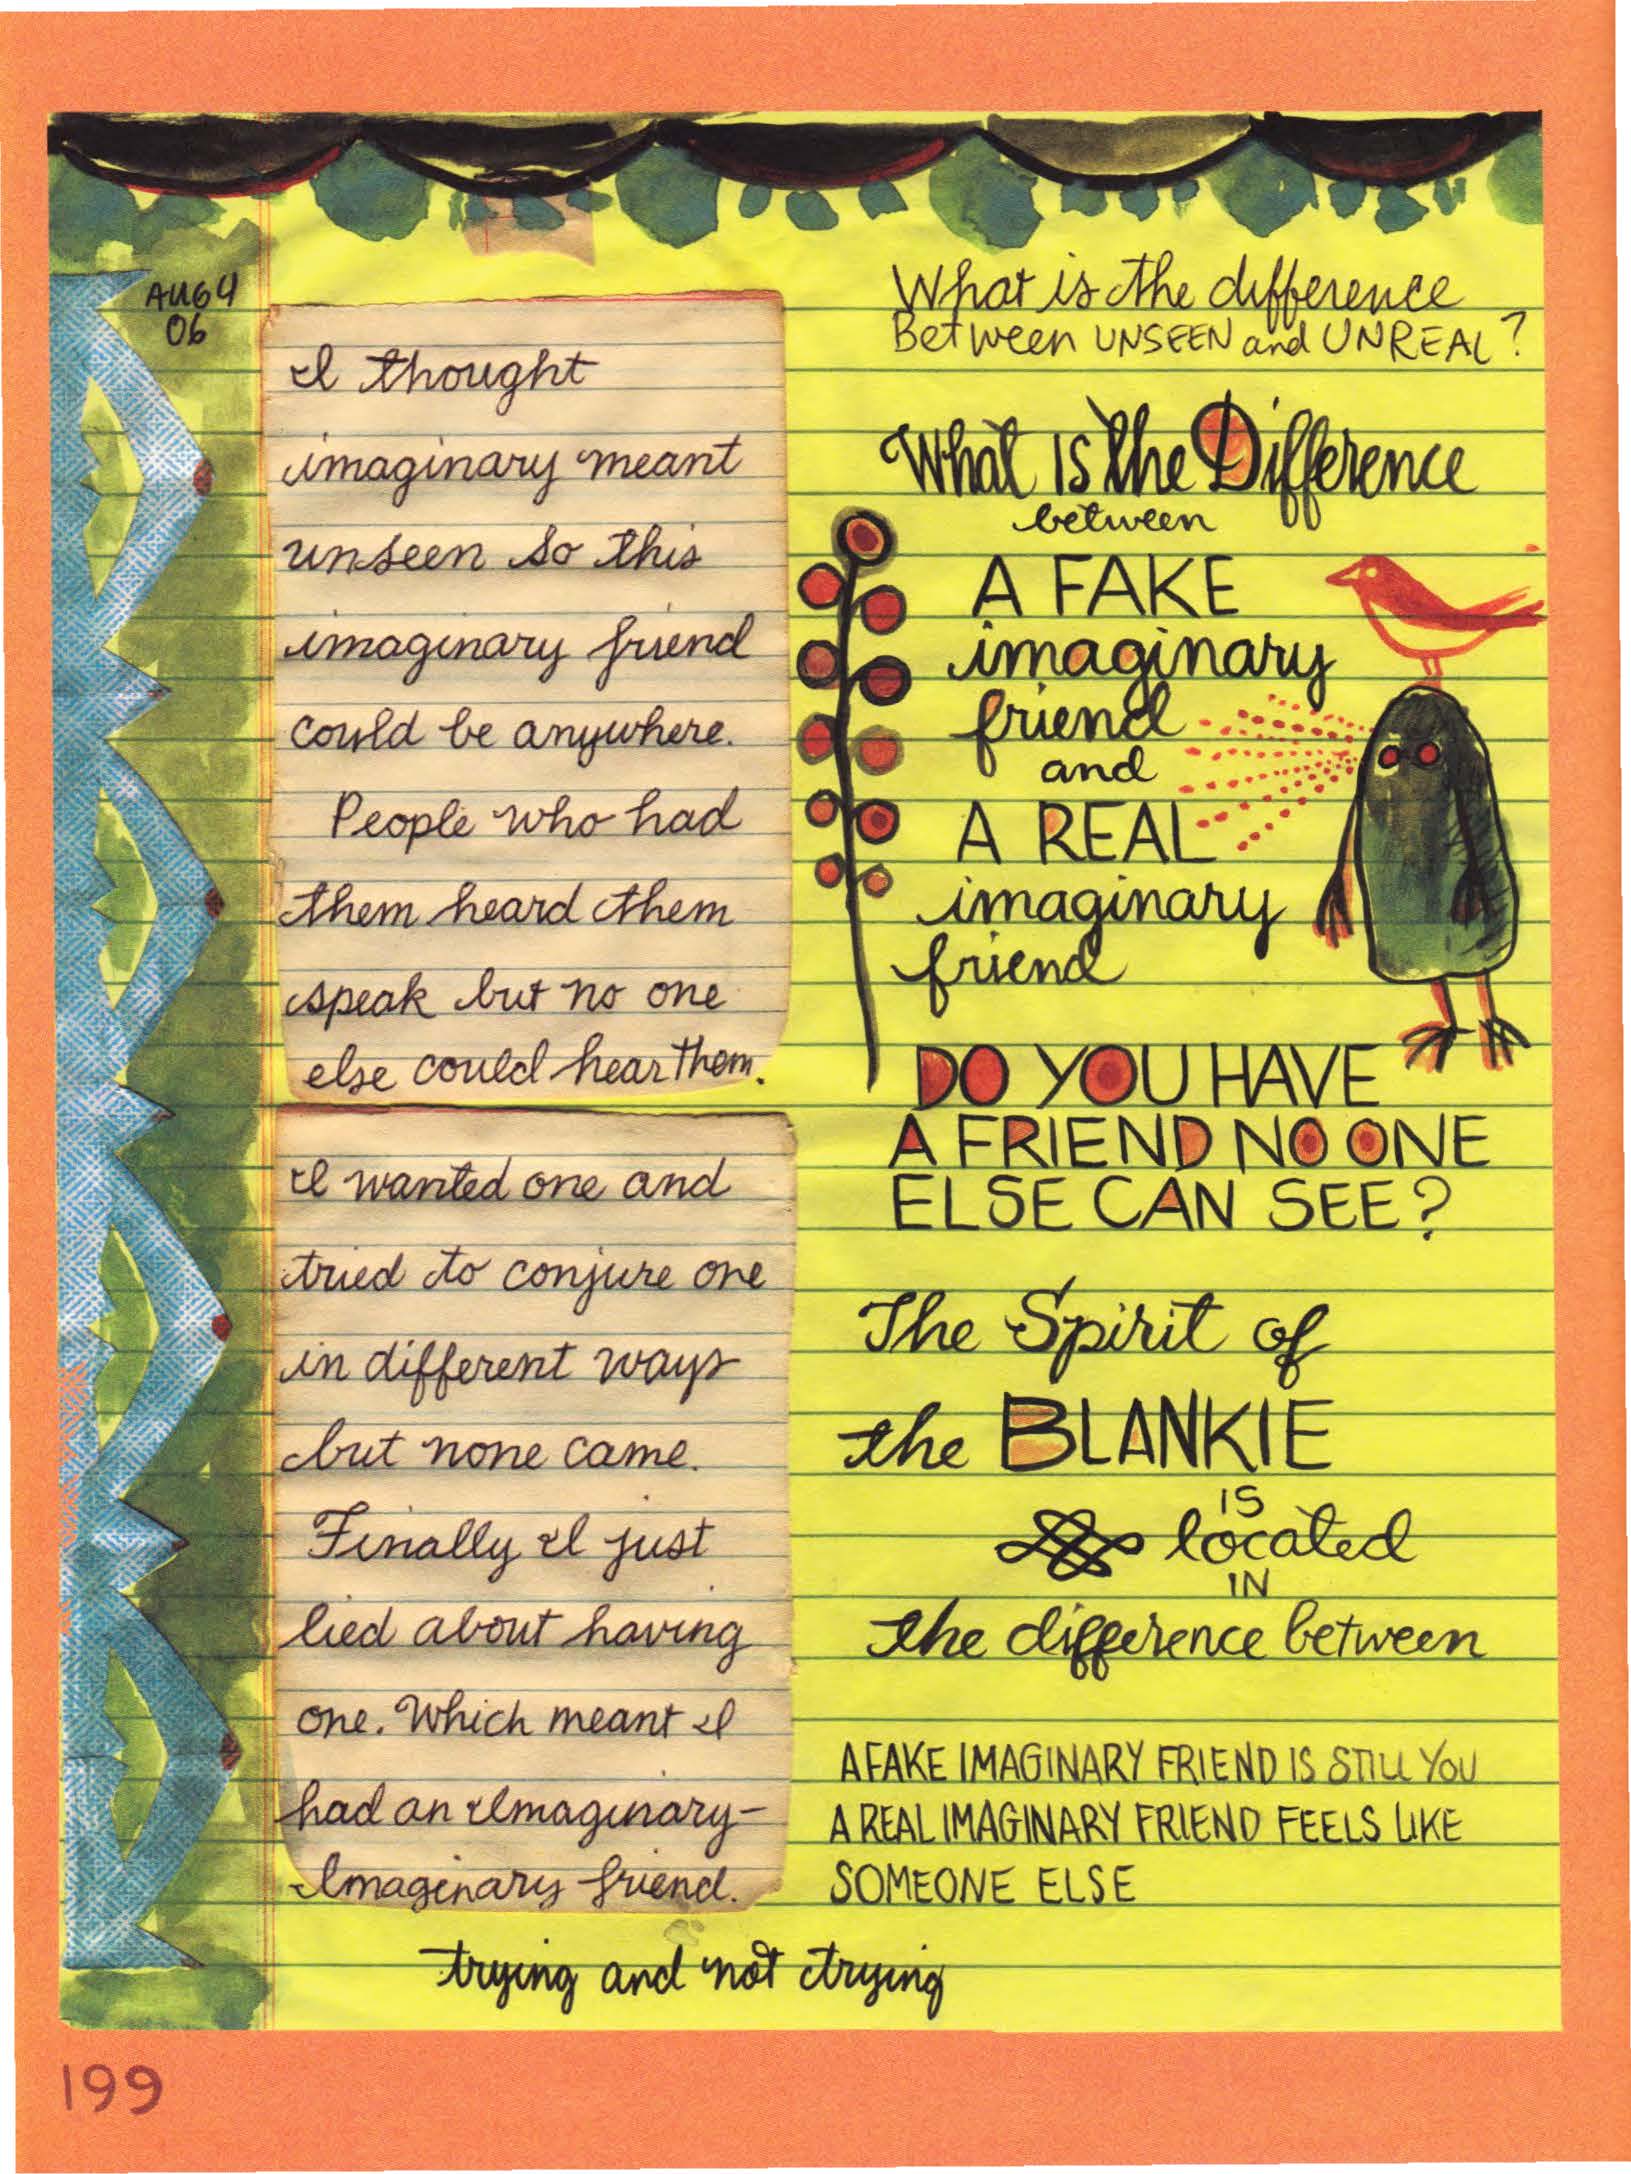 AUG 4
06
I thought
imaginary meant
unseen so this
imaginary friend
could be anywhere.
People who had
them heard them
speak but no one
else could hear them.
I wanted one and
tried to conjure one
in different ways
but none came.
Finally I just
lied about having
one. Which meant I
had an Imaginary-
Imaginary friend.
What is the difference
Between UNSEEN and UNREAL?
What IS the Difference
between
A FAKE
imaginary
friend
and
A REAL
imaginary
friend
DO YOU HAVE
A FRIEND NO ONE
ELSE CAN SEE?
The Spirit of
the BLANKIE
IS
located
IN
the difference between
A FAKE IMAGINARY FRIEND IS STILL YOU
A REAL IMAGINARY FRIEND FEELS LIKE
SOMEONE ELSE
trying and not trying
199